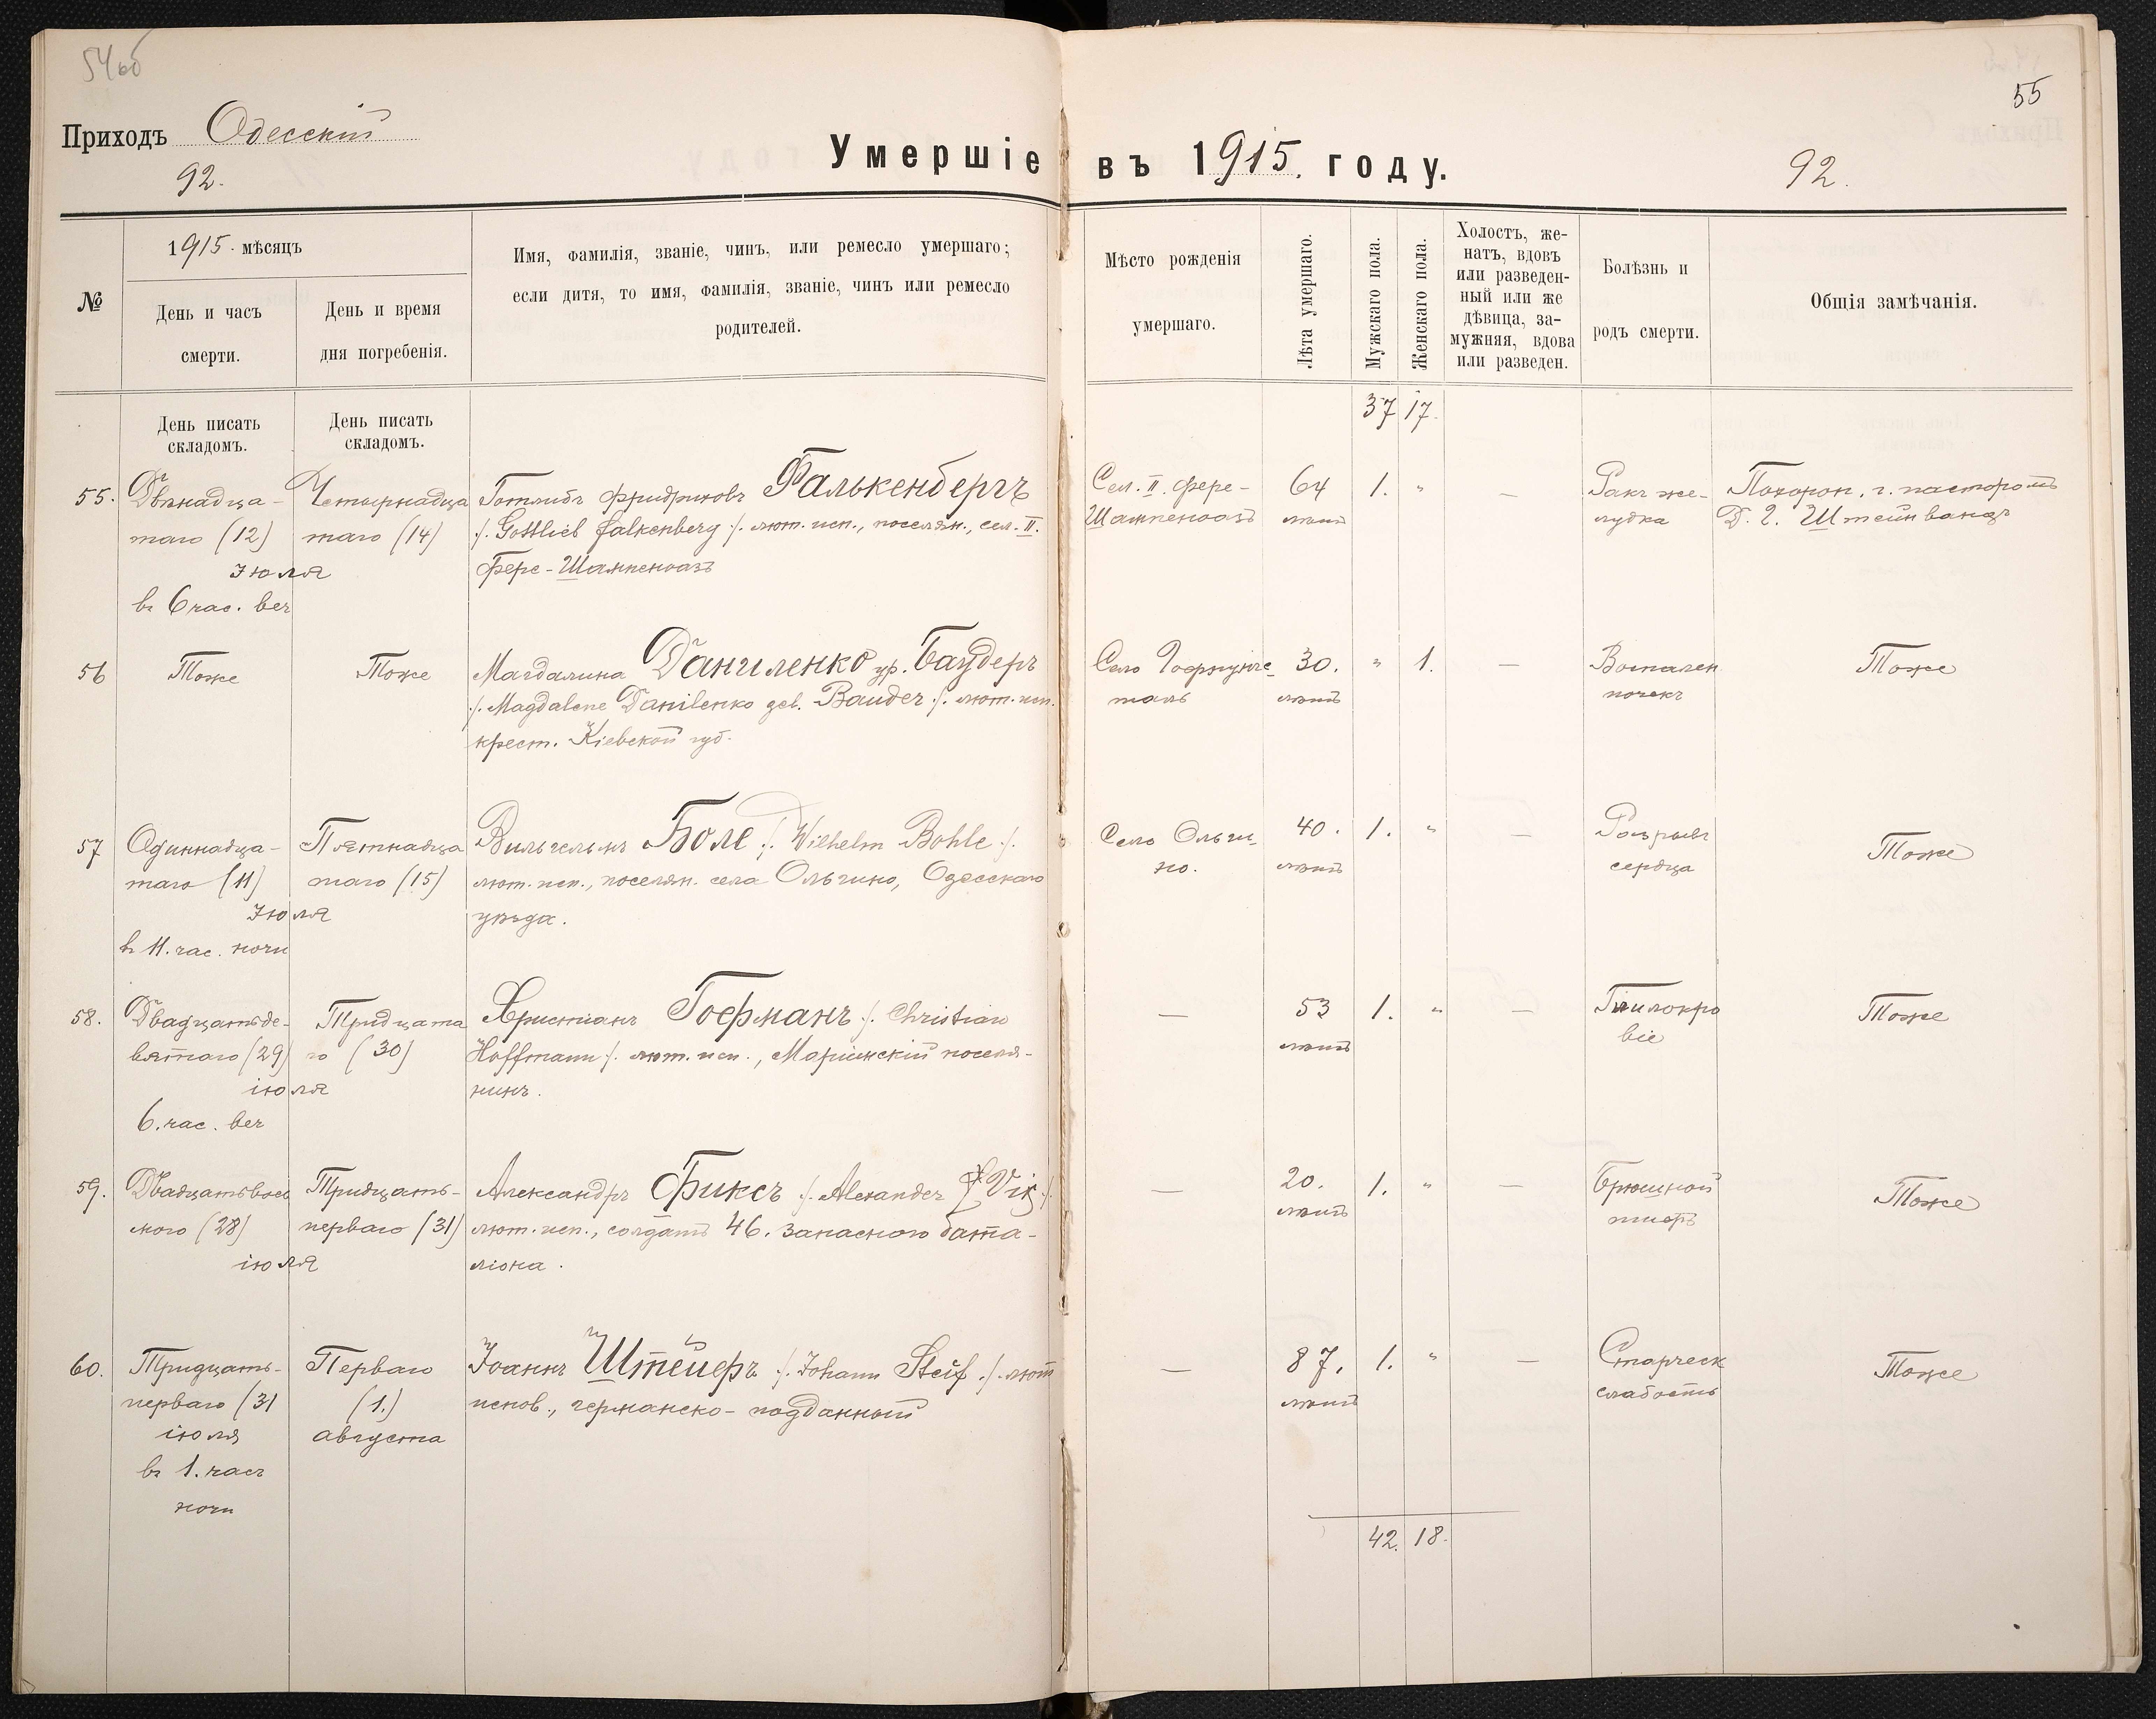 54об
55
Приходъ Одесскій
92.
Умершіе въ 1915. году.
92.
№
1915. мѣсяцъ
День и часъ
смерти.
День и время
дня погребенія.
Имя, фамилія, званіе, чинъ, или ремесло умершаго;
если дитя, то имя, фамилія, званіе, чинъ или ремесло
родителей.
Мѣсто рожденія
умершаго.
Лѣта умершаго.
Мужскаго пола.
Женскаго пола.
Холостъ, же-
натъ, вдовъ
или разведен-
ный или же
дѣвица, за-
мужняя, вдова
или разведен.
Болѣзнь и
родъ смерти.
Общія замѣчанія.
День писать
складомъ.
День писать
складомъ.
37 17.
55. Двѣнадца- Четырнадца Готлибъ Фридриховъ Фалькенбергъ Сел. II. Фере- 64 1. " — Ракъ же- Похорон. г. пасторомъ
таго (12) таго (14) ·/. Gottlieb Falkenberg ·/. лют. исп., поселян., сел. II. Шампенуазъ лѣтъ лудка Д. Г. Штейнвандъ
Іюля Фере-Шампенуазъ
въ 6 час. веч
56 Тоже Тоже Магдалина Даниленко ур. Баудеръ Село 30. " 1. — Воспален Тоже
·/. Magdalene Danilenko geb. Bauder ·/. лют. исп. таль лѣтъ почекъ
крест. Кіевской губ.
57 Одиннадца- Пятнадца Вильгельмъ Боле ·/. Wilhelm Bohle ·/. Село Ольги- 40. 1. " — Разрывъ Тоже
таго (11) таго (15) лют. исп., поселян. села Ольгино, Одесскаго но. лѣтъ сердца
Іюля уѣзда.
въ 11. час. ночи
58. Двадцатьде- Тридцата Христіанъ Гофманъ ·/. Christian — 53 1. " — Гнилокро Тоже
вятаго (29) го (30) Hoffmann ·/. лют. исп., Маріинскій поселя- лѣтъ віе
іюля нинъ.
6. час. веч
59. Двадцатьвось Тридцать- Александръ Фиксъ ·/. Alexander Vix ·/. — 20. 1. " — Брюшной Тоже
мого (28) перваго (31) лют. исп., солдатъ 46. запасного бата- лѣтъ тифъ
іюля ліона.
60. Тридцать- Перваго Іоаннъ Штейфъ ·/. Johann Steif ·/. лют — 87. 1. " — Старческ Тоже
перваго (31 (1.) испов., германско-подданный лѣтъ слабость
іюля августа
въ 1. часъ
ночи
42. 18.